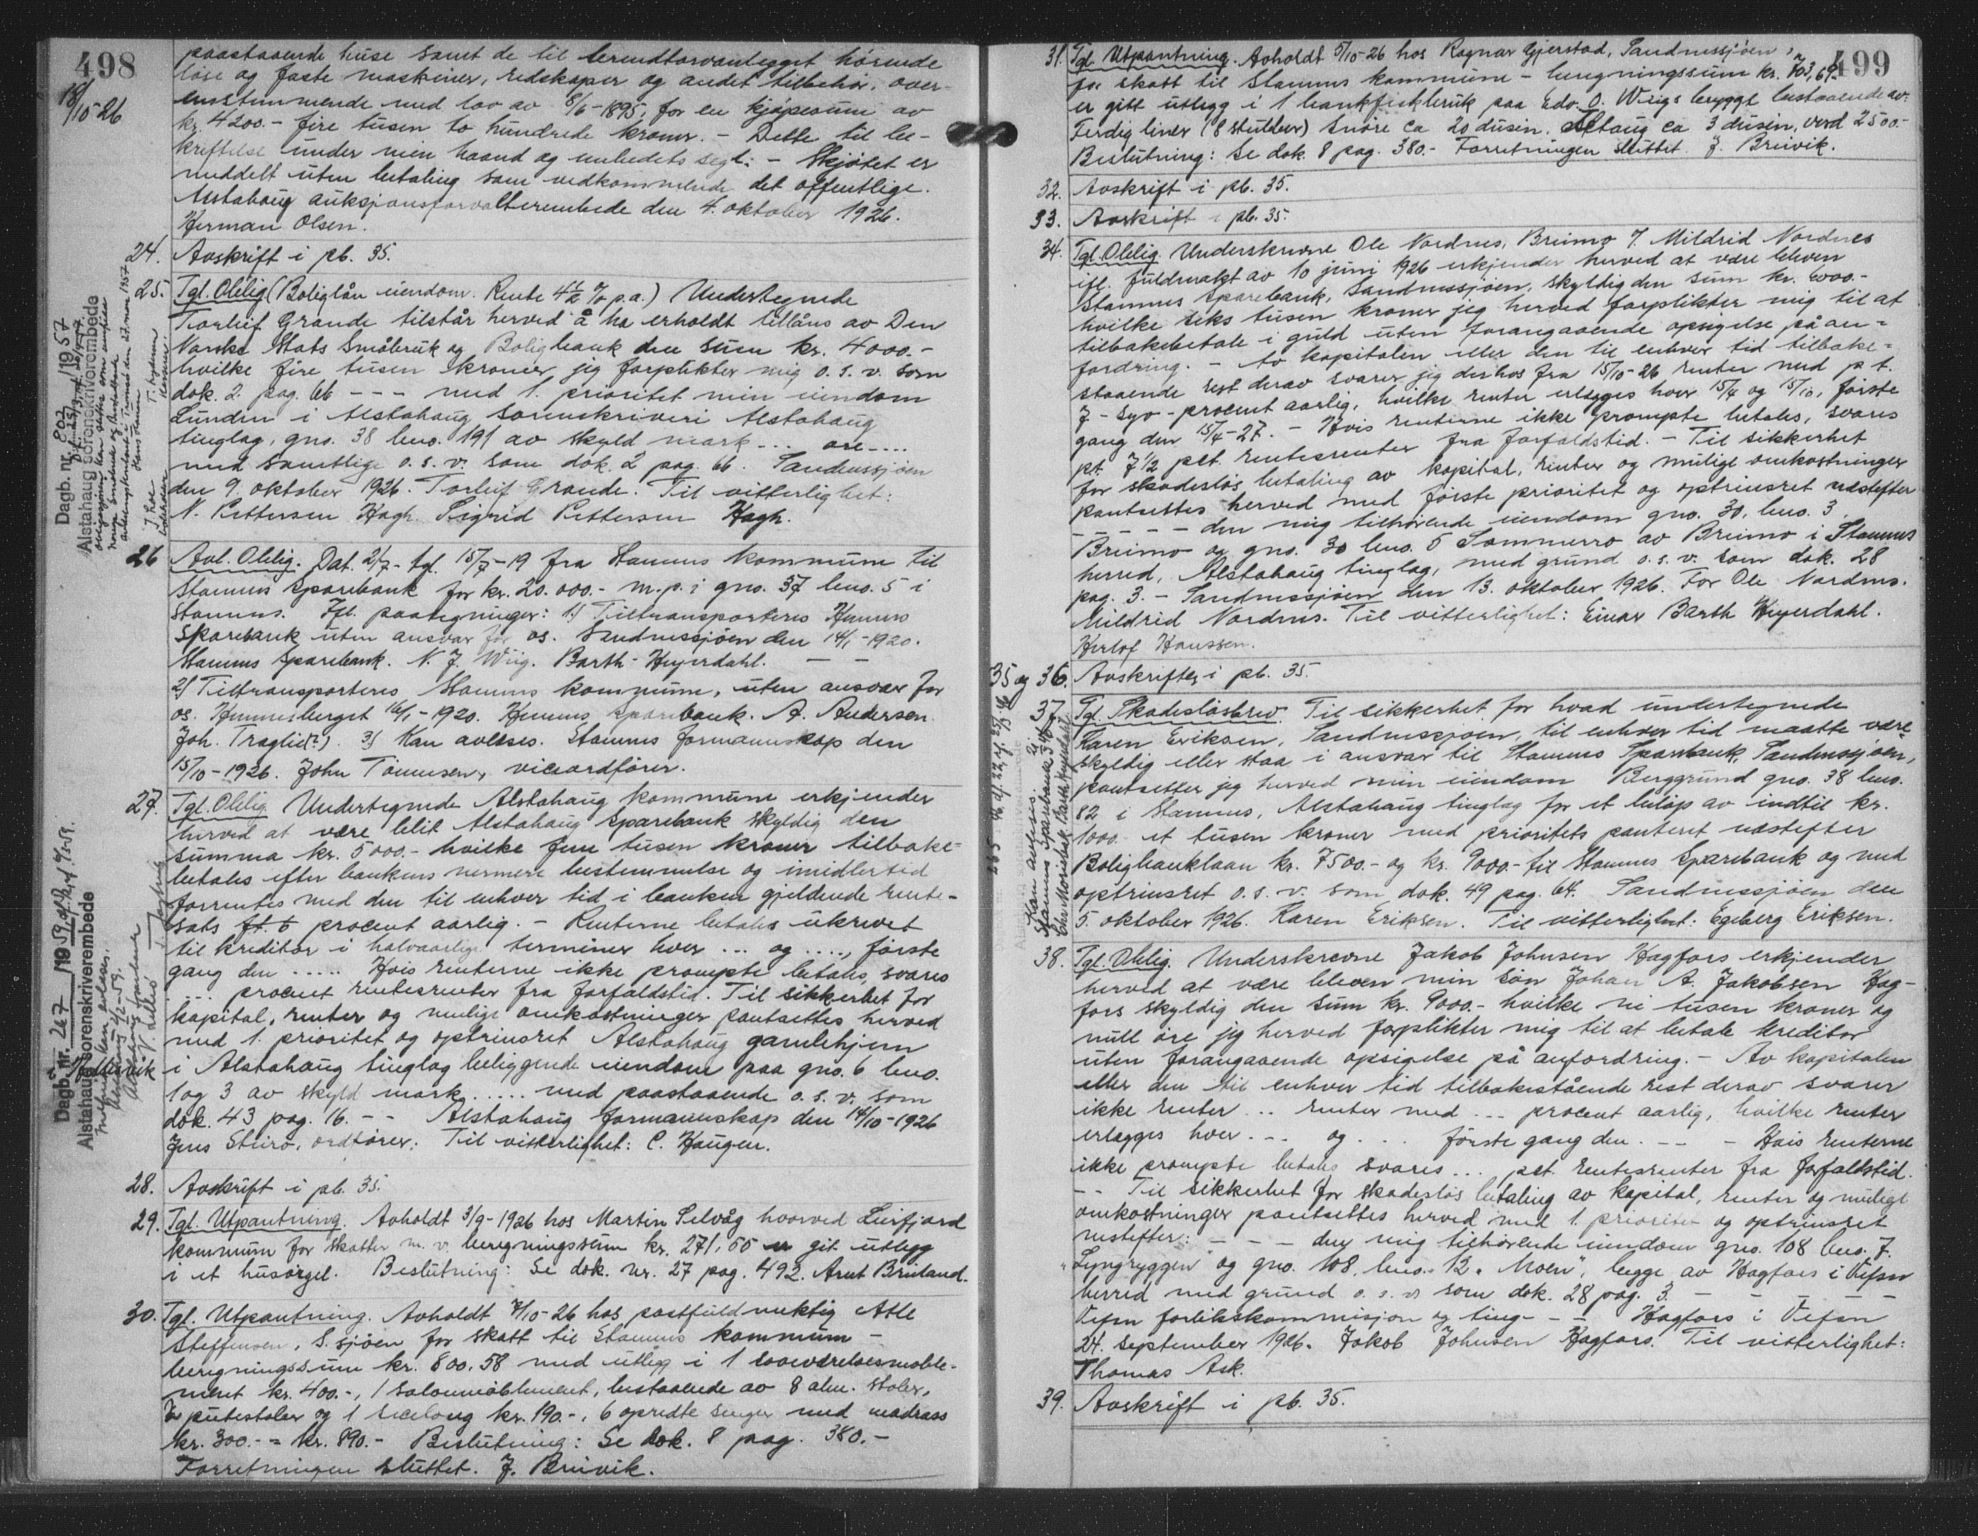 498
18/10-26
paastaaende huse samt de til brændtorvanlegget hørende
løse og faste maskiner, redskaper og andet tilbehør, over-
ensstemmende med lov av 8/6-1895, for en kjøpesum av
kr. 4200.- fire tusen to hundrede kroner. - Dette til be-
kræftelse under min haand og embedets segl: - Skjøtet er
meddelt uten betaling som vedkommende det offentlige.
Alstahaug auksjonsforvalterembede den 4. oktober 1926.
Herman Olsen.
24. Avskrift i pb. 35.
25. Tgl. Oblig (Boliglån eiendom. Rente 4 1/2 % p.a.) Undertegnede
Torleif Grande tilstår herved å ha erholdt tillåns av Den
Norske Stats Småbruk og Boligbank den sum kr. 4000.-
hvilke fire tusen kroner jeg forplikter mig o.s.v. som
dok. 2 pag. 66 - - - med 1. prioritet min eiendom
Lunden i Alstahaug sorenskriveri Alstahaug
tinglag, gno. 38 bno. 191 av skyld mark ... øre ....
med samtlige o.s.v. som dok. 2 pag. 66. Sandnessjøen
den 9. oktober 1926. Torleif Grande. Til vitterlighet:
N. Pettersen Hagh. Sigrid Pettersen Hagh.
Dagb. nr. 802 /1957
Alstahaug sorenskriverembede
26 Avl. Oblig. Dat. 2/7- tgl. 15/7-19 fra Stamnes kommune til
Stamnes Sparebank for kr. 20.000.- m.p. i gno. 37 bno. 5 i
Stamnes. Ifl. paategninger: 1) Tiltransporteres Hemnes
Sparebank uten ansvar for os. Sandnessjøen den 14/1-1920.
Stamnes Sparebank. N. J. Wiig. Barth-Heyerdahl. - -
2) Tiltransporteres Stamnes kommune, uten ansvar for
os. Hemnesberget 16/1-1920. Hemnes Sparebank. A. Andersen.
Joh. Traglid(?). 3) Kan avlæses. Stamnes formannskap den
15/10-1926. John Tønnesen, viceordfører.
27. Tgl. Oblig. Undertegnede Alstahaug kommune erkjender
herved at være blit Alstahaug Sparebank skyldig den
summa kr. 5000.- hvilke fem tusen kroner tilbake-
betales efter bankens nermere bestemmelse og imidlertid
forrentes med den til enhver tid i banken gjeldende rente-
sats f.t. 6 procent aarlig. - Renterne betales ukrevet
til kreditor i halvaarlige terminer hver ... og ..., første
gang den ..... Hvis renterne ikke prompte betales, svares
... procent rentesrenter fra forfaldstid. Til sikkerhet for
kapital, renter og mulige omkostninger pantsettes herved
med 1. prioritet og optrinsret Alstahaug gamlehjem
i Alstahaug tinglag beliggende eiendom paa gno. 6 bno.
1 og 3 av skyld mark ..... med paastaaende o.s.v. som
dok. 43 pag. 16. - - Alstahaug formannskap den 14/10-1926
Jens Steiro, ordfører. Til vitterlighet: C. Haugen.
Dagb. nr. 267 /1959
Alstahaug sorenskriverembede
28. Avskrift i pb. 35.
29. Tgl. Utpantning. Avholdt 3/9-1926 hos Martin Selvåg hoved Leirfjord
kommune for skatter m.v. beregningssum kr. 271,55 er git utlegg
i et husorgel. Beslutning: Se dok. nr. 27 pag. 492. Arnt Britand.
30. Tgl. Utpantning. Avholdt 7/10-26 hos postfuldmektig Atle
Steffensen, S.sjøen for skatt til Stamnes kommune -
beregningssum kr. 800.58 med utleg i 1 soveværelsesmøble-
ment kr. 400.-, 1 salonmøblement, bestaaende av 8 alm. stoler,
2 putestoler og 1 sielong kr. 190.-, 6 opredte senger med madrass
kr. 300.- = kr. 890.- Beslutning: Se dok. 8 pag. 380.-
Forretningen sluttet. J. Breivik.
499
31. Tgl. Utpantning. Avholdt 5/10-26 hos Ragnar Gjerstad, Sandnessjøen,
for skatt til Stamnes kommune - beregningssum kr. 703,69.-
er gitt utlegg i 1 bankfiskebruk paa Edv. O. Wiigs brygge bestaaende av:
Ferdig liner (8 stubber) snøre ca 20 dusin. Iletaug ca 3 dusin, verd 2500.-
Beslutning: Se dok. 8 pag. 380.- Forretningen sluttet. J. Breivik.
32. Avskrift i pb. 35.
33. Avskrift i pb. 35.
34. Tgl. Oblig. Underskrevne Ole Nordnes, Breimo f. Mildrid Nordnes
ifl. fuldmakt av 10 juni 1926 erkjender herved at være bleven
Stamnes Sparebank, Sandnessjøen, skyldig den sum kr. 6000.-
hvilke seks tusen kroner jeg herved forplikter mig til at
tilbakebetale i guld uten forangaaende opsigelse på an-
fordring. - Av kapitalen eller den til enhver tid tilbake-
staaende rest derav svarer jeg derhos fra 15/10-26 renter med p.t.
7 - syv - procent aarlig, hvilke renter erlegges hver 15/4 og 15/10, første
gang den 15/4-27. - Hvis renterne ikke prompte betales, svares
pt. 7 1/2 pct. rentesrenter fra forfaldstid. - Til sikkerhet
for skadesløs betaling av kapital, renter og mulige omkostninger
pantsettes herved med første prioritet og optrinsret næstefter
- - - - den mig tilhørende eiendom gno. 30, bno. 3
Breimo og gno. 30 bno. 5 Sommerro av Breimo i Stamnes
herred, Alstahaug tinglag, med grund o.s.v. som dok. 28
pag. 3. - Sandnessjøen den 13. oktober 1926. For Ole Nordnes.
Mildrid Nordnes. Til vitterlighet: Einar Barth Heyerdahl.
Herlof Hanssen.
35 og 36. Avskrifter i pb. 35.
37 Tgl. Skadesløsbrev. Til sikkerhet for hvad undertegnede
Karen Eriksen, Sandnessjøen, til enhver tid maatte være
skyldig eller staa i ansvar til Stamnes Sparebank, Sandnessjøen,
pantsetter jeg herved min eiendom Berggrund gno. 38 bno.
82 i Stamnes, Alstahaug tinglag for et beløp av indtil kr.
1000.- et tusen kroner med prioritets panteret næstefter
Boligbanklaan kr. 7500.- og kr. 9000.- til Stamnes Sparebank og med
optrinsret o.s.v. som dok. 49 pag. 64. Sandnessjøen den
5. oktober 1926. Karen Eriksen. Til vitterlighet: Egeberg Eriksen.
38. Tgl. Oblig. Underskrevne Jakob Johnsen Hagfors erkjender
herved at være bleven min søn Johan A. Jakobsen Hag-
fors skyldig den sum kr. 9000.- hvilke ni tusen kroner og
null øre jeg herved forplikter mig til at betale kreditor
uten forangaaende opsigelse på anfordring. - Av kapitalen
eller den til enhver tid tilbakestående rest derav svarer
ikke renter ... renter med ... procent aarlig, hvilke renter
erlegges hver ... og ... første gang den ... - Hvis renterne
ikke prompte betales svares ... pct. rentesrenter fra forfaldstid.
- - Til sikkerhet for skadesløs betaling av kapital, renter og mulige
omkostninger pantsettes herved med 1. prioritet og optrinsret
nestefter: - - - den mig tilhørende eiendom gno. 108 bno. 7.
"Lyngryggen" og gno. 108, bno. 12 "Moen", begge av Hagfors i Vefsn
herred med grund o.s.v. som dok. 28 pag. 3. - - - -
Vefsn forlikskommisjon og ting- - - Hagfors i Vefsn
24. september 1926. Jakob Johnsen Hagfors. Til vitterlighet:
Thomas Ask.
39. Avskrift i pb. 35.